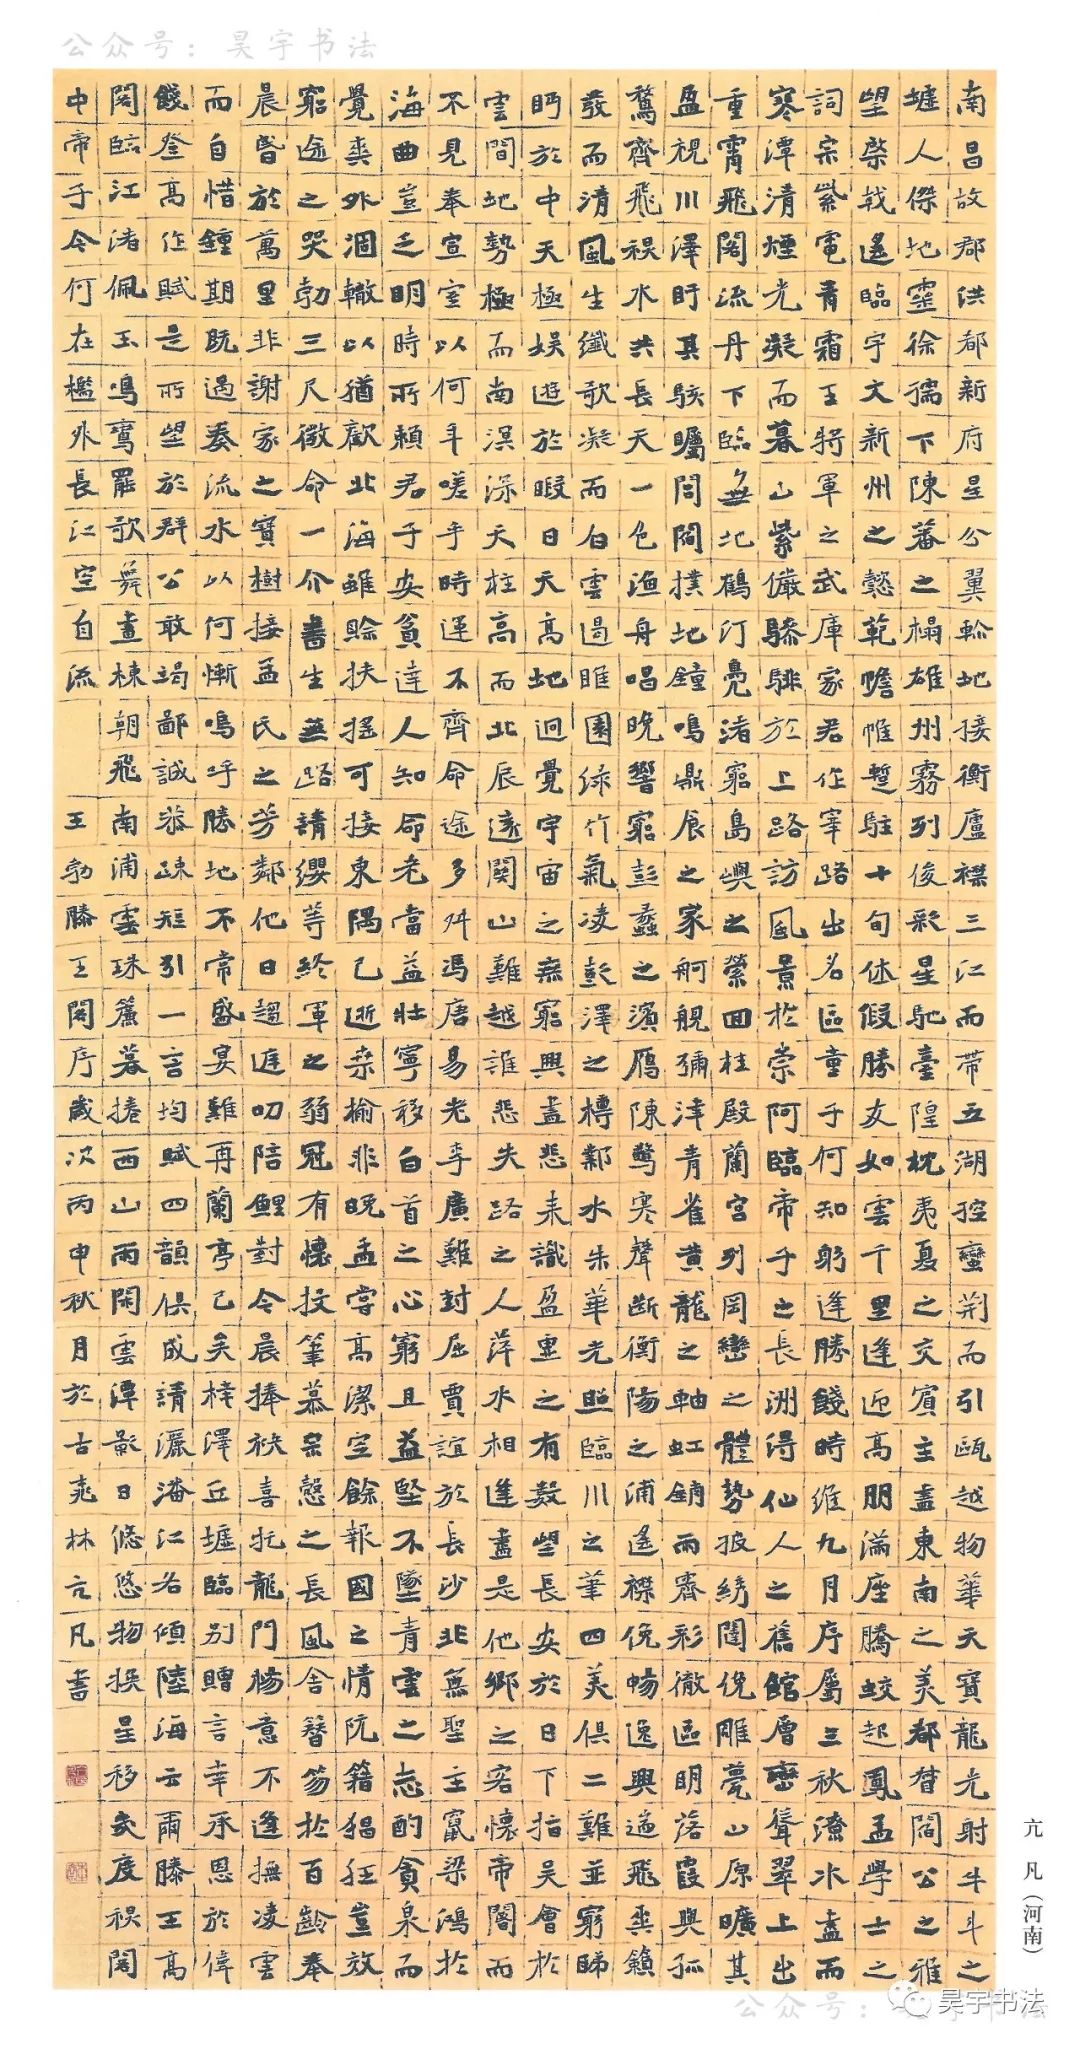 公众号：昊宇书法
南昌故郡洪都新府星分翼軫地接衡廬襟三江而帶五湖控蠻荊而引甌越物華天寶龍光射牛斗之
墟人傑地靈徐孺下陳蕃之榻雄州霧列俊彩星馳臺隍枕夷夏之交賓主盡東南之美都督閻公之雅
望棨戟遙臨宇文新州之懿範幨帷暫駐十旬休假勝友如雲千里逢迎高朋滿座騰蛟起鳳孟學士之
詞宗紫電青霜王將軍之武庫家君作宰路出名區童子何知躬逢勝餞時維九月序屬三秋潦水盡而
寒潭清煙光凝而暮山紫儼驂騑於上路訪風景於崇阿臨帝子之長洲得仙人之舊館層巒聳翠上出
重霄飛閣流丹下臨無地鶴汀鳧渚窮島嶼之縈回桂殿蘭宮列岡巒之體勢披綉闥俛雕甍山原曠其
盈視川澤盱其駭矚閭閻撲地鐘鳴鼎食之家舸艦彌津青雀黃龍之軸虹銷雨霽彩徹區明落霞與孤
鶩齊飛秋水共長天一色漁舟唱晚響窮彭蠡之濱雁陳驚寒聲斷衡陽之浦遙襟俛暢逸興遄飛爽籟
發而清風生纖歌凝而白雲遏睢園綠竹氣凌彭澤之樽鄴水朱華光照臨川之筆四美俱二難並窮睇
眄於中天極娛遊於暇日天高地迥覺宇宙之無窮興盡悲來識盈虛之有數望長安於日下指吳會於
雲間地勢極而南溟深天柱高而北辰遠關山難越誰悲失路之人萍水相逢盡是他鄉之客懷帝閽而
不見奉宣室以何年嗟乎時運不齊命途多舛馮唐易老李廣難封屈賈誼於長沙非無聖主竄梁鴻於
海曲豈乏明時所賴君子安貧達人知命老當益壯寧移白首之心窮且益堅不墜青雲之志酌貪泉而
覺爽外涸轍以猶歡北海雖賒扶搖可接東隅已逝桑榆非晚孟嘗高潔空餘報國之情阮籍猖狂豈效
窮途之哭勃三尺微命一介書生無路請纓等終軍之弱冠有懷投筆慕宗愨之長風舍簪笏於百齡奉
晨昏於萬里非謝家之寶樹接孟氏之芳鄰他日趨庭叨陪鯉對今晨捧袂喜托龍門楊意不逢撫凌雲
而自惜鍾期既遇奏流水以何慚嗚呼勝地不常盛宴難再蘭亭已矣梓澤丘墟臨別贈言幸承恩於偉
餞登高作賦是所望於群公敢竭鄙誠恭疎短引一言均賦四韻俱成請灑潘江各傾陸海云爾滕王高
閣臨江渚佩玉鳴鸞罷歌舞畫棟朝飛南浦雲珠簾暮捲西山雨閑雲潭影日悠悠物換星移幾度秋閣
中帝子今何在檻外長江空自流 王勃滕王閣序歲次丙申秋月於古桃林亢凡書
亢凡（河南）
昊宇书法